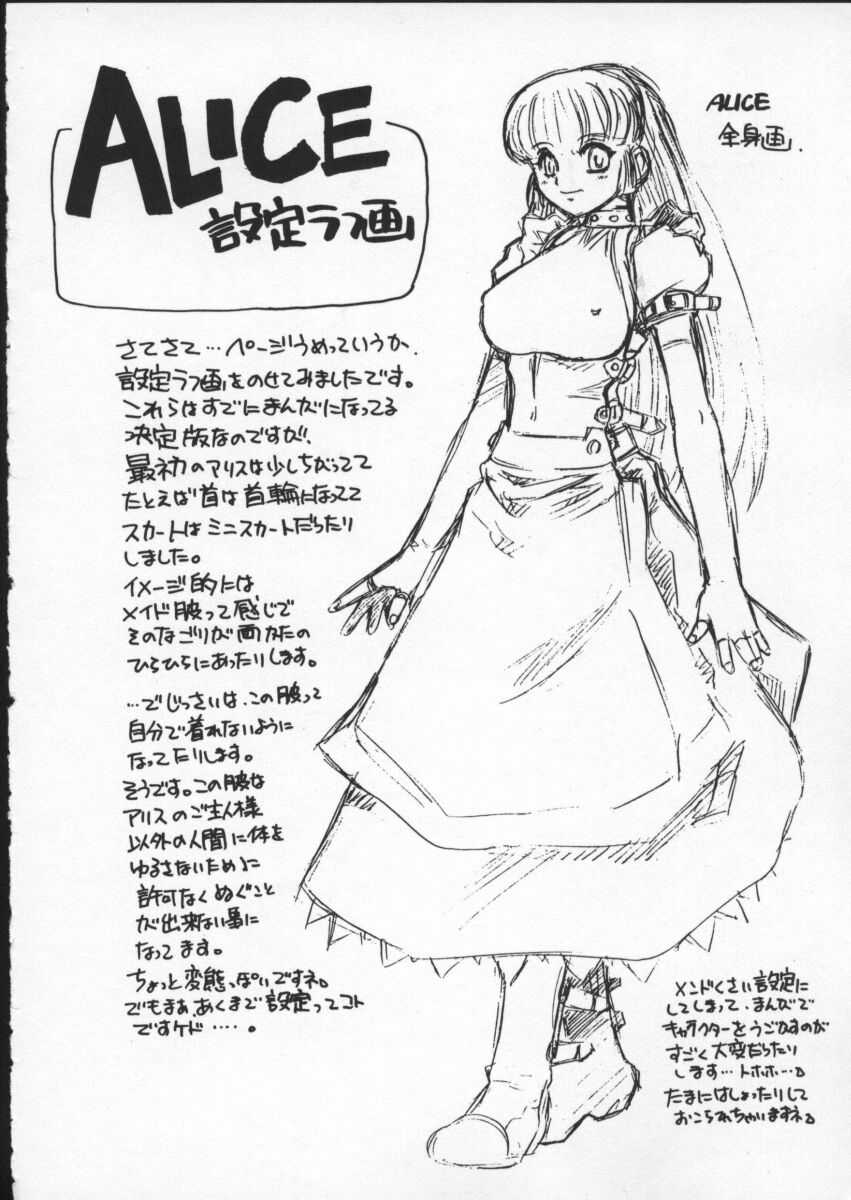 ALICE
設定ラフ画
ALICE
全身画.
さてさて…ページうめっていうか.
設定ラフ画をのせてみましたです。
これらはすでにまんがになってる
決定版なのですが、
最初のアリスは少しちがってて
たとえば首は首輪になってて
スカートはミニスカートだったり
しました。
イメージ的には
メイド服って感じで
そのなごりが両かたの
ひらひらにあったりします。
…でじっさいは、この服って
自分で着れないように
なってたりします。
そうです。この服は
アリスのご主人様
以外の人間に体を
ゆるさないために
許可なくぬぐこと
が出来ない事に
なってます。
ちょっと変態っぽいですネ。
でもまぁ、あくまで設定ってコト
ですケド…..。
メンドくさい設定に
してしまって、まんがで
キャラクターをうごかすのが
すごく大変だったり
します…トホホ…。
たまにはしょったりして
おこられちゃいますネ。